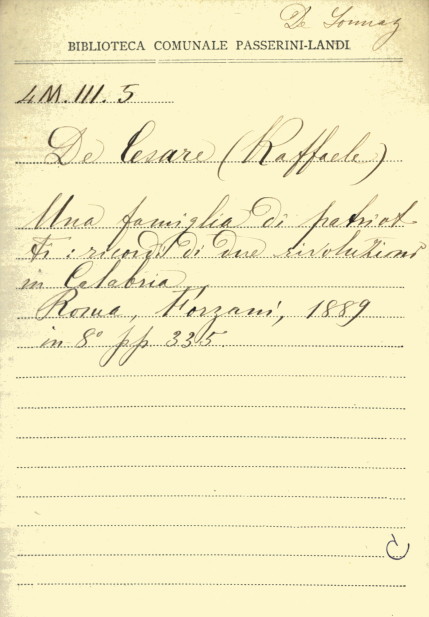 De Sonnaz
BIBLIOTECA COMUNALE PASSERINI-LANDI
4M.III.5
De Cesare (Raffaele)
Una famiglia di patriot
ti: ricordi di due rivoluzioni
in Calabria
Roma, Forzani, 1889
in 8° pp 335